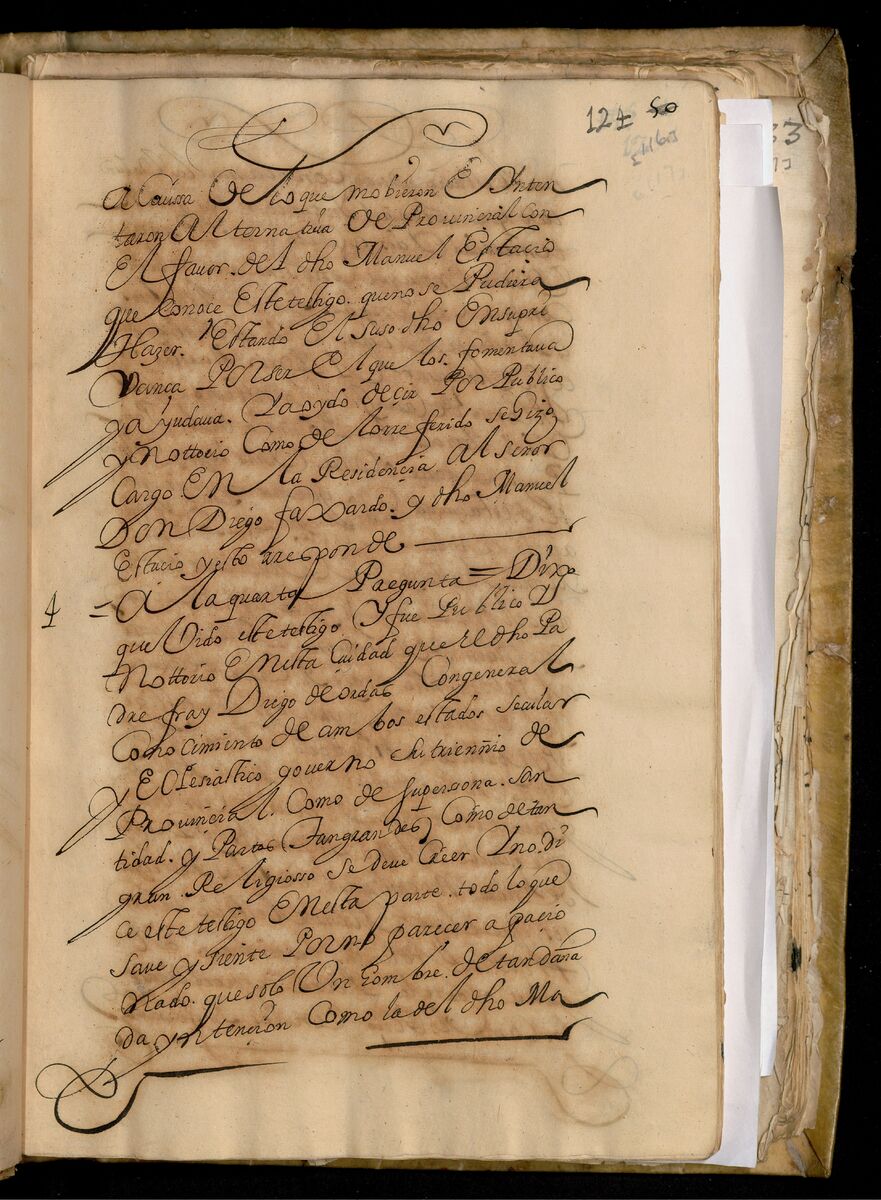 124 50
a Caussa de lo que mobieron E Ynten
taron Alternatiua de Provincial con
El favor. del dho Manuel Estacio
que conoce Este testigo. que no se Pudiera
Hazer. Estando El suso dho En su pri
vança Por ser El que los. fomentaua
y ayudaua. Ya oydo deçir Por Publico
y Nottorio Como de lo rreferido se hizo
Cargo EN la Residencia al señor
DON Diego faxardo. y dho Manuel
Estacio y esto rresponde
4 = A la quarta Pregunta = Dixo
que Vido este testigo Y fue Publico Y
Nottorio En esta Ciudad que El dho Pa
dre fray Diego de ordas Con general
Conocimiento de ambos estados secular
y Eclesiastico governo su trienñio de
Provinçial. Como de su perssona. san
tidad. y Partes Tan grandes Como de tan
gran. Religiosso se deve Creer Y no. di
ce este testigo En esta parte. todo lo que
save y siente Por no parecer apacio
nado. que solo Un hombre. de tan daña
da yntençion Como la del dho Ma